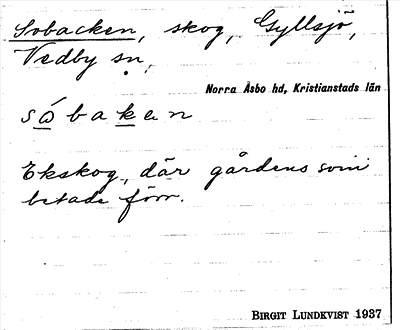 Sobacken, skog, Gyllsjö,
Vedby sn,
Norra Åsbo hd, Kristianstads län
sòbaken
Ekskog, där gårdens svin
betade förr.
BIRGIT LUNDKVIST 1937